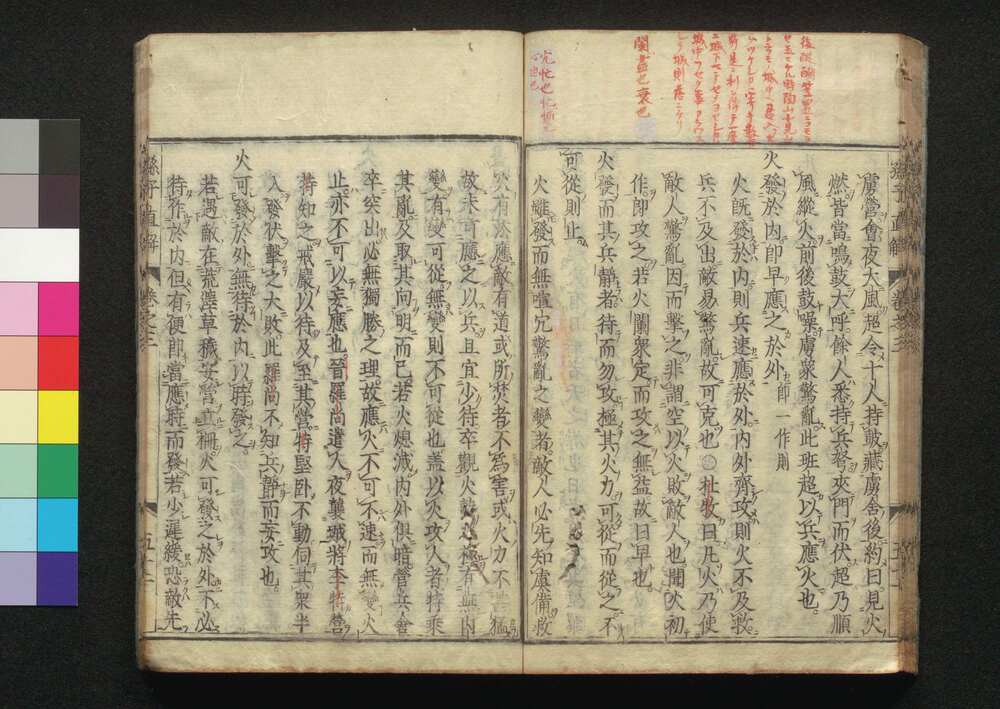 虜營會夜大風超令十人持鼓藏虜舍後約曰見火
燃皆當鳴鼓大呼餘人悉持兵弩夾門而伏超乃順
風縱火前後鼓噪虜衆驚亂此班超以兵應火也
火發於內卽早應之於外 卽一作則
火旣發於內則兵速應於外內外齊攻則火不及救
兵不及出敵易驚亂故可克也○杜牧曰凡火乃使
敵人驚亂因而擊之非謂空以火敗敵人也聞火初
作卽攻之若火闌衆定而攻之無益故曰早也
火發而其兵靜者待而勿攻極其火力可從而從之不
可從則止
火雖發而無喧冗驚亂之變者敵人必先知虞備救
火有法應敵有道或所焚者不爲害或火力不甚猛
故未可應之以兵且宜少待卒觀火勢之極有無內
變有變可從無變則不可從也蓋以火攻人者特乘
其亂及取其向明而已若火熄滅內外俱暗營兵會
卒突出必無獨勝之理故應火不可不速而無變火
止亦不可以妄應也晉羅尚遣人夜襲城將李特營
特知之戒嚴以待及至其營特堅卧不動伺其衆半
入發伏擊之大敗此羅尚不知兵靜而妄攻也
火可發於外無待於內以時發之
若遇敵在荒澤草穢安營立柵火可發之於外不必
待作於內但有便卽當應時而發若少遲緩恐敵先
孫子直解
卷之三
闌盡也衰也